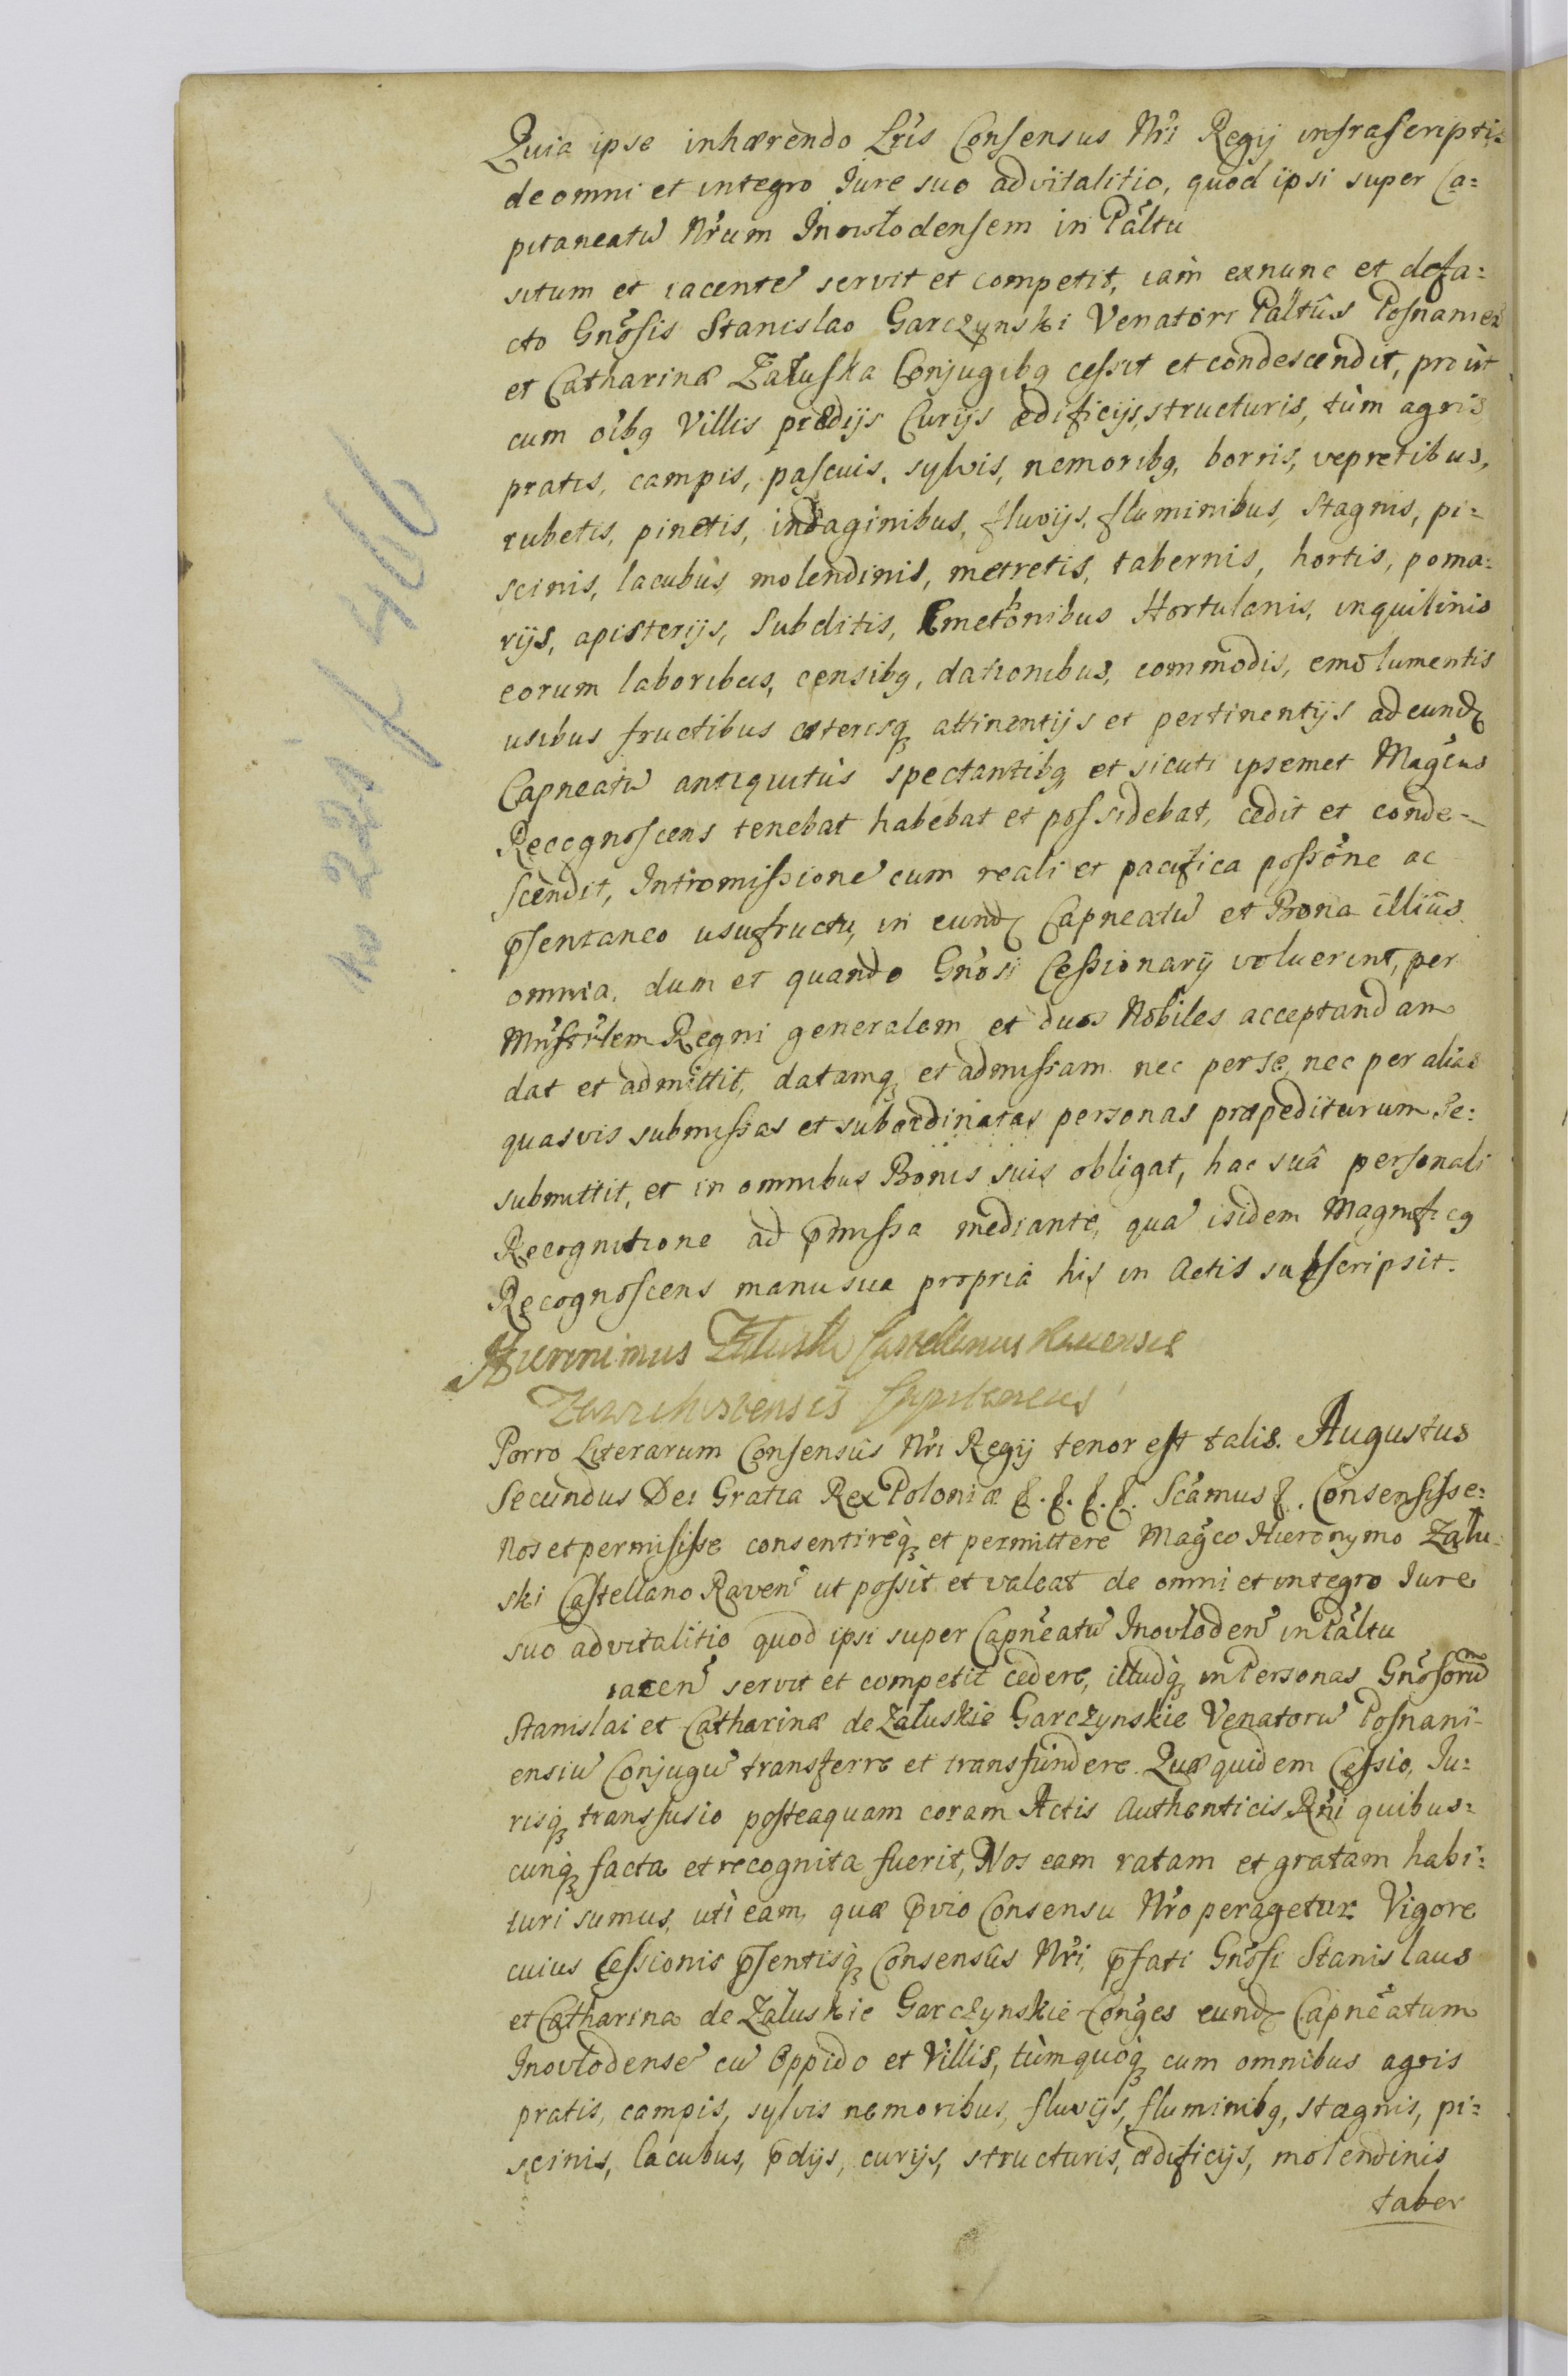 Quia ipse inhærendo Lr̃is Consensus Nr̃i Regij infrascripti=
de omni et integro Iure suo advitalitio, quod ipsi super Ca=
pitaneatũ Nr̃um Inowłodensem in Pal̃tu
situm et iacentẽ servit et competit, iam exnunc et defa=
cto Gnõsis Stanislao Garczynski Venatori Pal̃tûs Posnanien
et Catharinæ Załuska Conjugibq cessit et condescendit, prout
cum oĩbq Villis prædijs Curijs ædificijs, structuris, tùm agris
pratis, campis, pascuis, sylvis, nemoribq, borris, vepretibus,
rubetis, pinetis, indaginibus, fluvijs, fluminibus, Stagnis, pi=
scinis, lacubus, molendinis, metretis, tabernis, hortis, poma=
rijs, apisterijs, Subditis, Cmethonibus Hortulanis, inquilinis
eorum laboribus, censibq, dationibus, commodis, emolumentis
usibus fructibus cæterisq attinentijs et pertinentijs ad eund
Capneatũ antiquitùs spectantibq et sicuti ipsemet Magcus
Recognoscens tenebat habebat et possidebat, cedit et conde=
scendit, Intromissionẽ cum reali et pacifica possõne ac
p̃sentaneo usufructu, in eund Capneatũ et Bona illius
omnia, dum et quando Gnõsi Cessionarij voluerint, per
Mnistr̃lem Regni generalem et duos Nobiles acceptandam
dat et admittit, datamq et admissam nec per se, nec per alias
quasvis submissas et subordinatas personas præpediturum Se=
submittit, et in omnibus Bonis suis obligat, hac suâ personali
Recognitione ad p̃missa mediante, quã isidem Magnificq
Recognoscens manu sua propriâ his in Actis subscripsit.
Hieronimus Załuski Castellanus Rauensis
Zawichostensis Capitaneus
Porro Literarum Consensûs Nr̃i Regij tenor est talis. Augustus
Secundus Dei Gratia Rex Poloniæ &. &. &. &. Scãmus &. Consensisse=
Nos et permisisse consentireq et permittere Magco Hieronymo Zału=
ski Castellano Raven̄ ut possit et valeat de omni et integro Iure
suo advitalitio quod ipsi super Capneatũ Inovłoden̄ in Pal̃tu
iacen̄ servit et competit cedere, illudq in Personas Gnõsorũ
Stanislai et Catharinæ de Załuskie Garczynskie Venatorũ Posnani=
ensiũ Conjugũ transferre et transfundere. Quæ quidem Cessio, Iu=
risq transfusio posteaquam coram Actis Authenticis Rñi quibus=
cunq facta et recognita fuerit, Nos eam ratam et gratam habi=
turi sumus, uti eam, quæ p̃vio Consensu Nr̃o peragetur. Vigore
cuius Cessionis p̃sentisq Consensûs Nr̃i, p̃fati Gnõsi Stanislaus
et Catharina de Załuskie Garczynskie Conges eund Capneatum
Inovłodensẽ cũ Oppido et Villis, tùm quoq cum omnibus agris
pratis, campis, sylvis nemoribus, fluvijs, fluminibq, stagnis, pi=
scinis, lacubus, p̃dijs, curijs, structuris, ædificijs, molendinis
taber